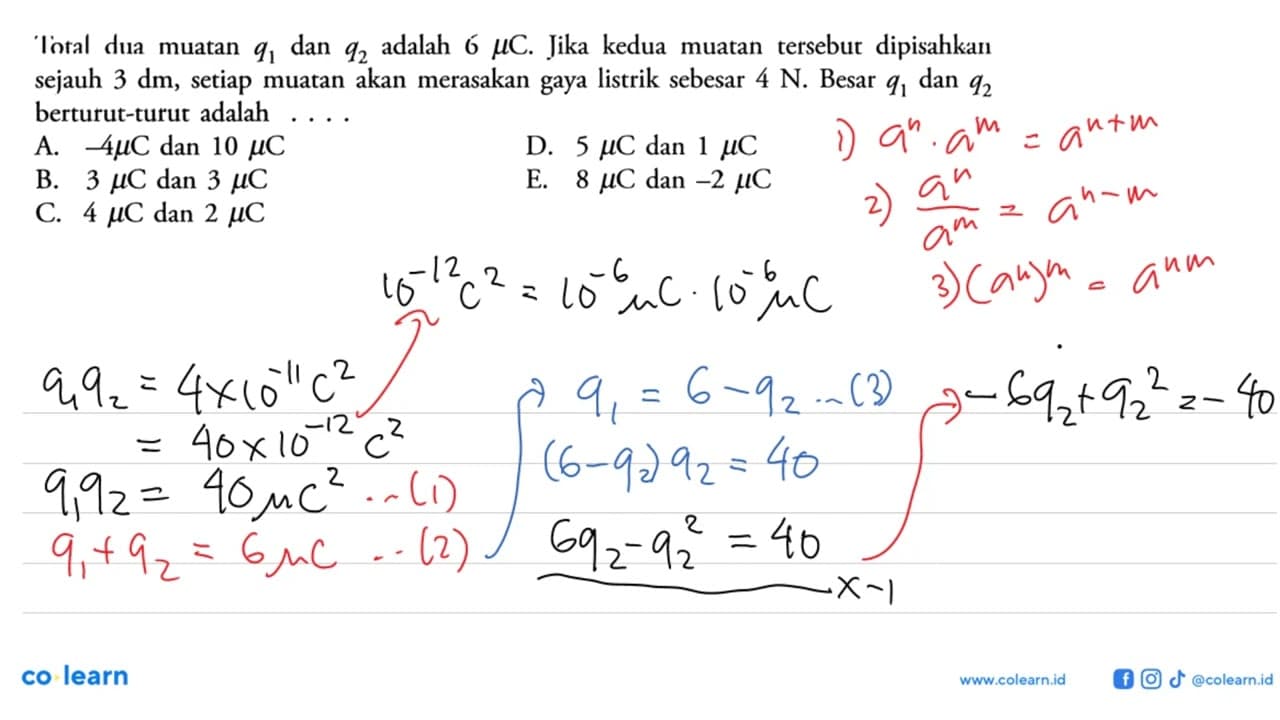 Total dua muatan q₁ dan q₂ adalah 6 μC. Jika kedua muatan tersebut dipisahkan
sejauh 3 dm, setiap muatan akan merasakan gaya listrik sebesar 4 N. Besar q₁ dan q₂
berturut-turut adalah . . . .
A. –4μC dan 10 μC
B. 3 μC dan 3 μC
C. 4 μC dan 2 μC
D. 5 μC dan 1 μC
E. 8 μC dan –2 μC
1) aⁿ . aᵐ = aⁿ⁺ᵐ
2) aⁿ/aᵐ = aⁿ⁻ᵐ
3) (aⁿ)ᵐ = aⁿᵐ
10⁻¹²C² = 10⁻⁶μC . 10⁻⁶μC
q₁q₂ = 4×10⁻¹¹C²
= 40×10⁻¹²C²
q₁q₂ = 40μC² ...(1)
q₁+q₂ = 6μC ...(2)
q₁ = 6-q₂ ...(3)
(6-q₂)q₂ = 40
6q₂-q₂² = 40
x-1
-6q₂+q₂² = -40
co learn
www.colearn.id
@colearn.id